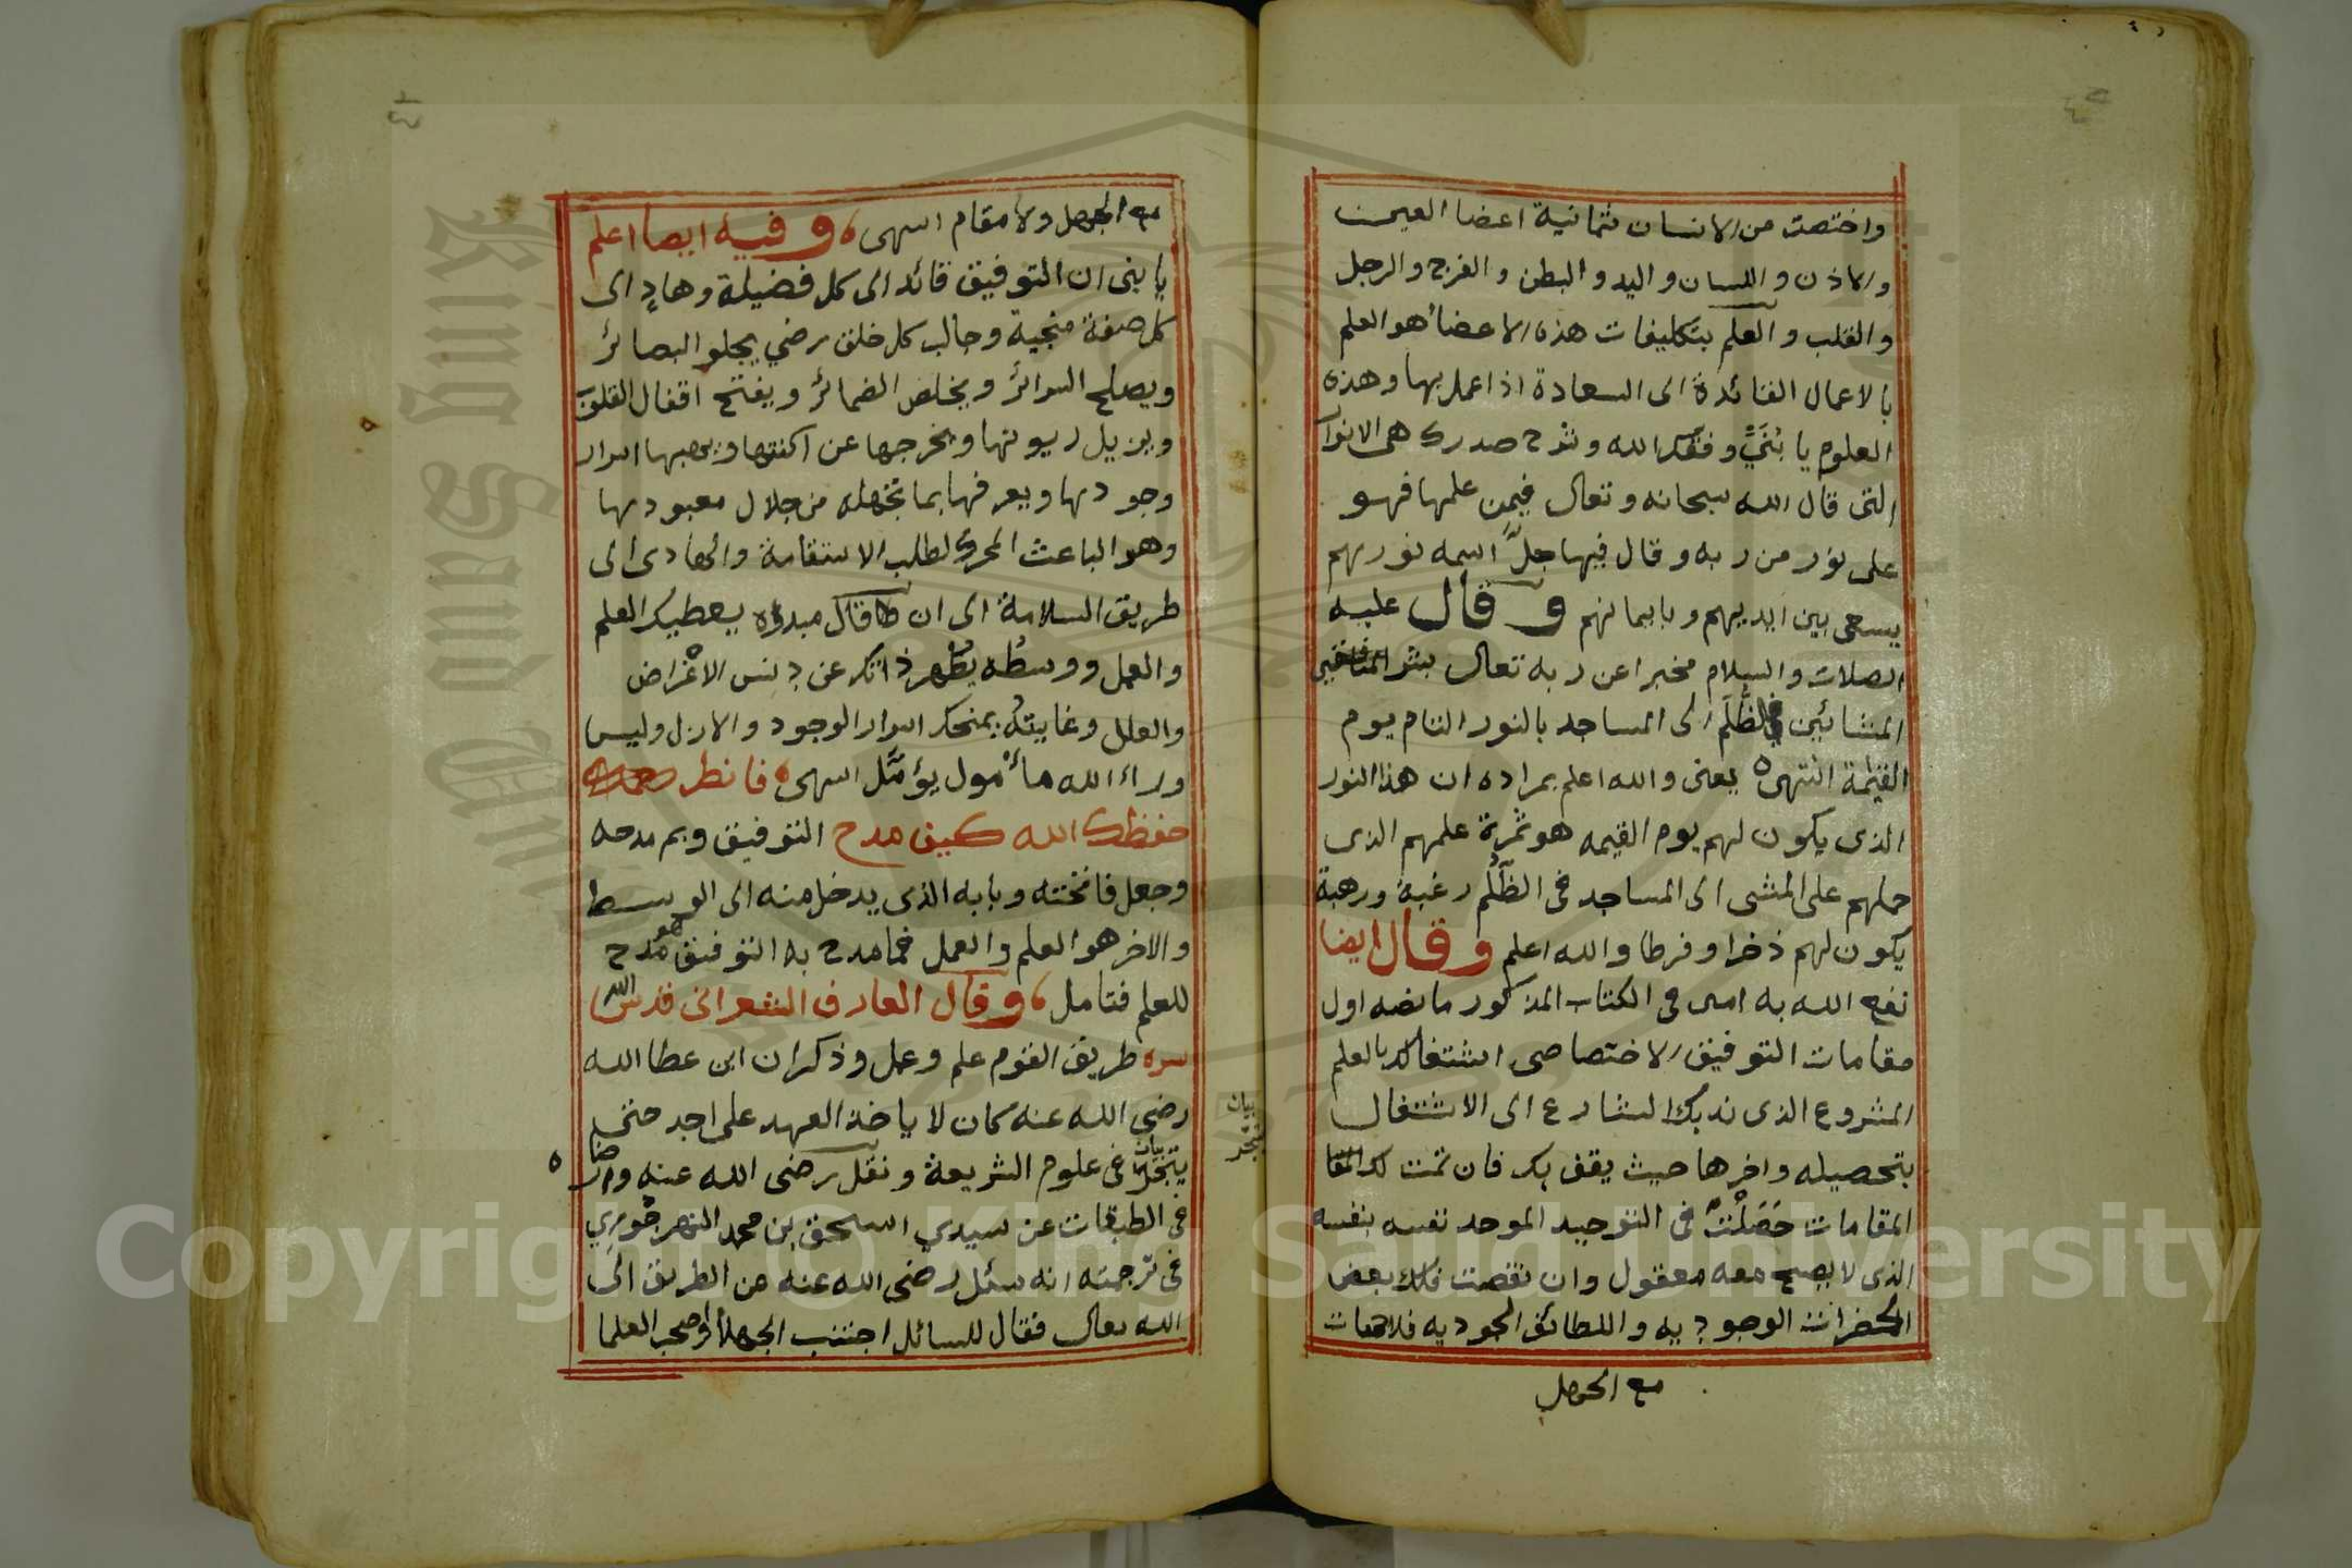 واختصت من الانسان ثمانية اعضا العين
والاذن واللسان واليد والبطن والفرج والرجل
والقلب والعلم بتكليفات هذه الاعضاء هو العلم
بالاعمال القائدة الى السعادة اذا عمل بها وهذه
العلوم يا بُنَيَّ وفقك الله وشرح صدرك هى الانوار
التى قال الله سبحانه وتعالى فيمن علمها فهو
على نور من ربه وقال فيها جلّ اسمه نورهم
يسعى بين ايديهم وبايمانهم وقال عليه
الصلات والسلام مخبرا عن ربه تعالى بشر
المشائين فى الظُّلَم الى المساجد بالنور التام يوم
القيمة انتهى يعنى والله اعلم بمراده ان هذا النور
الذى يكون لهم يوم القيمه هو ثمرة علمهم الذى
حملهم على المشى الى المساجد فى الظُّلَم رغبة ورهبة
يكون لهم ذخرا وفرطا والله اعلم وقال ايضا
نفع الله به امين فى الكتاب المذكور ما نصه اول
مقامات التوفيق الاختصاصى اشتغالك بالعلم
المشروع الذى ندبك الشارع الى الاشتغال
بتحصيله واخرها حيث يقف بك فان تمت لك
المقامات حَصَلْتَ فى التوحيد الموحد نفسه بنفسه
الذى لا يصح معه معقول وان نقصت فلك بعض
الحضرات الوجوديه واللطائف الجوديه فلاهفات
مع الجهل
مع الجهل ولا مقام انتهى وفيه ايضا اعلم
يا بنى ان التوفيق قائد الى كل فضيلة وهادٍ الى
كل صفة منجية وجالب كل خلق رضي يجلو البصائر
ويصلح السرائر ويخلص الضمائر ويفتح اقفال القلوب
ويزيل ريونها ويخرجها عن اكنتها ويهبها اسرار
وجودها ويعرفها بما تجهله من جلال معبودها
وهو الباعث المحرك لطلب الاستقامة والهادى الى
طريق السلامة الى ان قال مبدؤه يعطيك العلم
والعمل ووسطُه يُطَهر ذاتك عن دنس الاغْراض
والعلل وغايتهُ يمنحك اسرار الوجود والازل وليس
وراء الله مأمول يؤمَّل انتهى فانظر
حفظك الله كيف مدح التوفيق وبم مدحه
وجعل فاتحته وبابه الذى يدخل منه الى الوسط
والاخر هو العلم والعمل فما مدح به التوفيق هو مدح
للعلم فتامل وقال العارف الشعرانى قدس الله
سره طريق القوم علم وعمل وذكر ان ابن عطا الله
رضى الله عنه كان لا ياخذ العهد على احد حتى
يتبحر فى علوم الشريعة ونقل رضى الله عنه وارضاه
فى الطبقات عن سيدي اسحق بن محمد النهرجُوري
فى ترجمته انه سئل رضى الله عنه عن الطريق الى
الله تعالى فقال للسائل اجتنب الجهلا واصحب العلما
بيان
يتبحر
Copyright © King Saud University